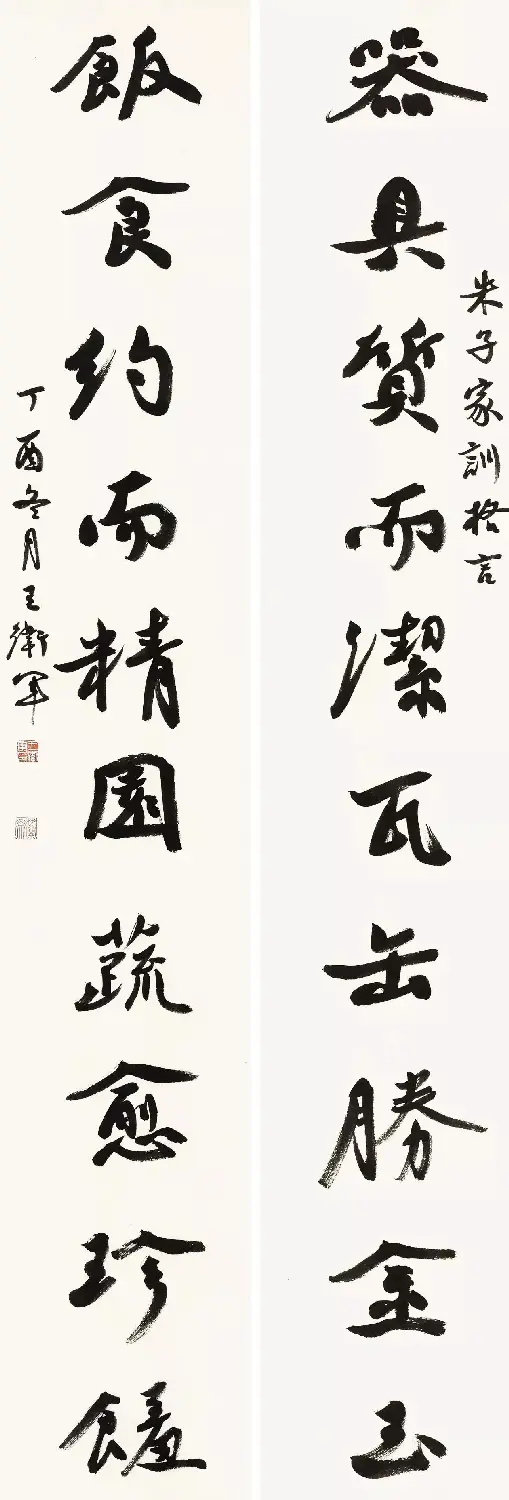 朱子家訓格言
器具質而潔瓦缶勝金玉
飯食約而精園蔬愈珍饈
丁酉冬月王衛軍